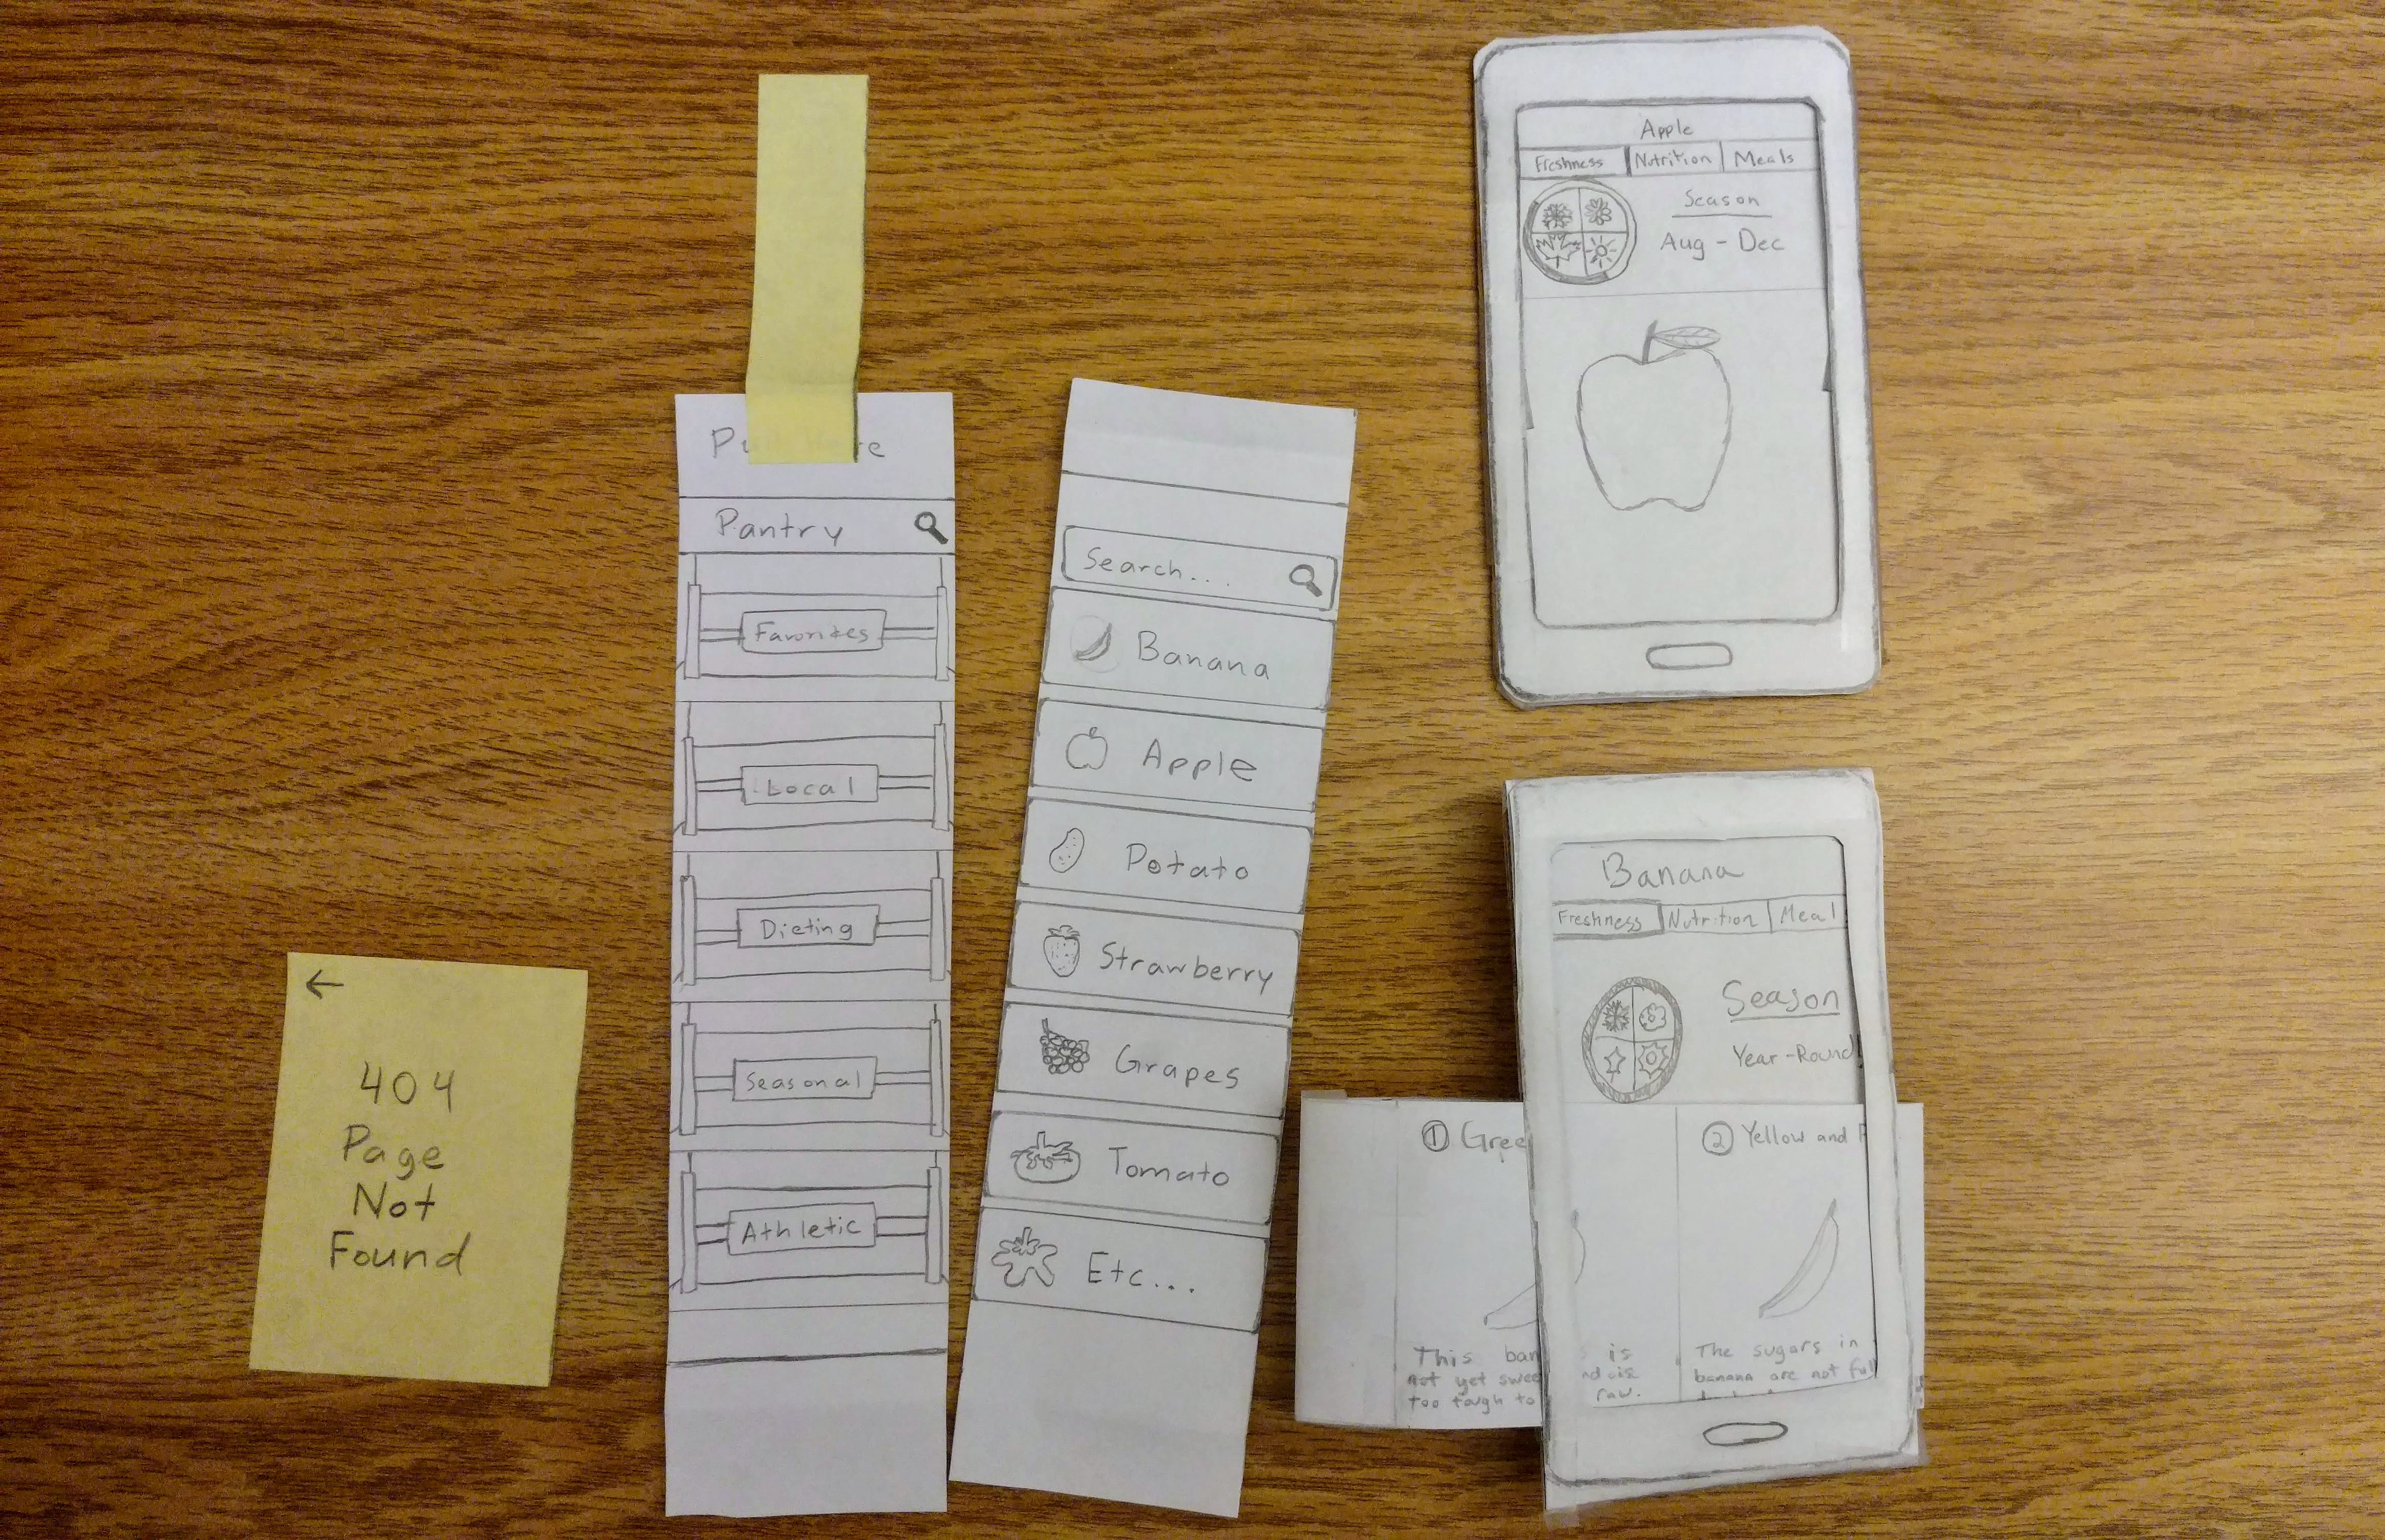 ←
404
Page
Not
Found
Pantry
Favorites
Local
Dieting
Seasonal
Athletic
Search...
Banana
Apple
Potato
Strawberry
Grapes
Tomato
Etc...
Apple
Freshness Nutrition Meals
Season
Aug - Dec
Banana
Freshness Nutrition Meal
Season
Year-Round
① Gree
This ban is
not yet swee nd is
too tough to raw.
② Yellow and
The sugars in
banana are not ful